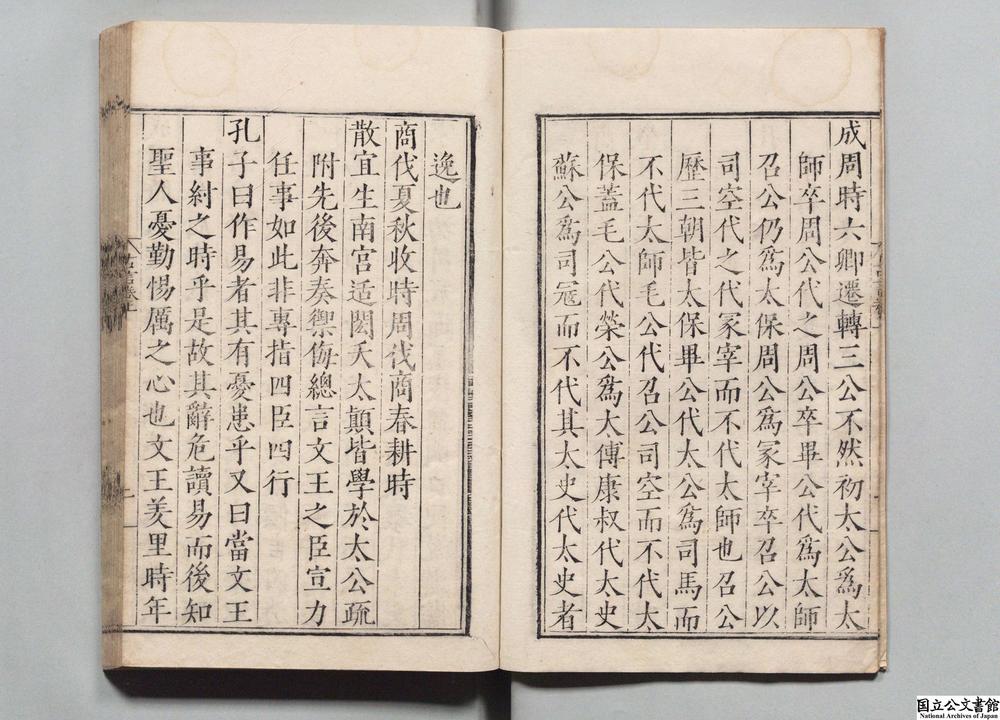 成周時六卿遷轉三公不然初太公爲太
師卒周公代之周公卒畢公代爲太師
召公仍爲太保周公爲冢宰卒召公以
司空代之代冢宰而不代太師也召公
歷三朝皆太保畢公代太公爲司馬而
不代太師毛公代召公司空而不代太
保蓋毛公代榮公爲太傅康叔代太史
蘇公爲司冦而不代其太史代太史者
逸也
商伐夏秋收時周伐商春耕時
散宜生南宮适閎夭太顚皆學於太公疏
附先後奔奏禦侮總言文王之臣宣力
任事如此非專指四臣四行
孔子曰作易者其有憂患乎又曰當文王
事紂之時乎是故其辭危讀易而後知
聖人憂勤惕厲之心也文王羑里時年
国立公文書館
National Archives of Japan